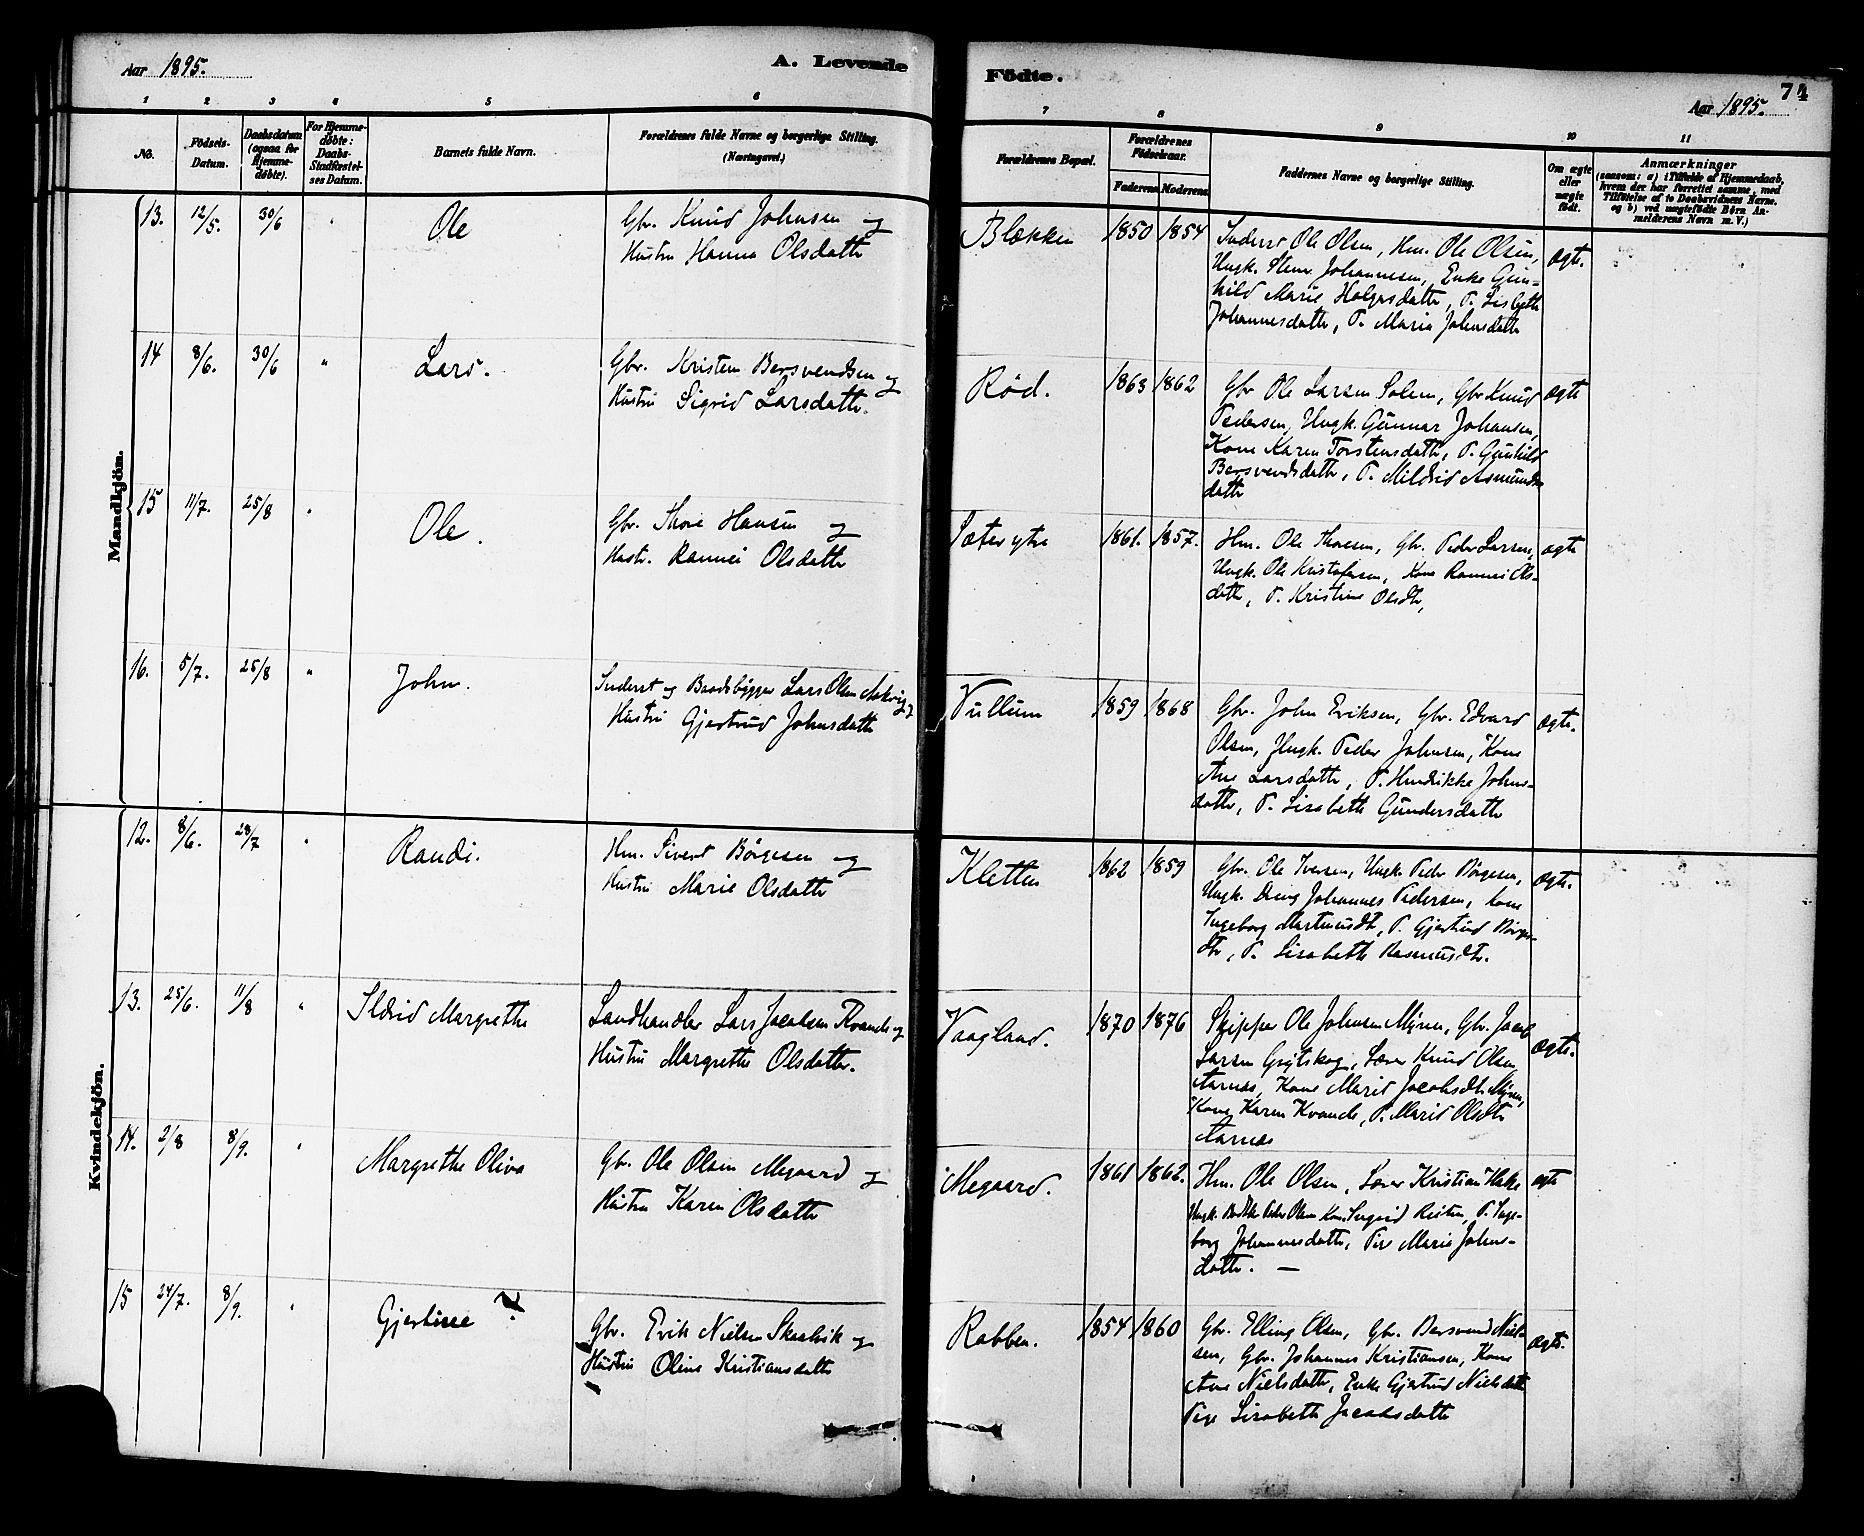 Aar 1895.
A. Levende Födte.
74
Aar 1895.
1 2 3 4 5 6 7 8 9 10 11
No.
Födsels-Datum.
Daabsdatum (ogsaa for Hjemme-döbte).
For Hjemme-döbte: Daabs-Stadfæstel-ses Datum.
Barnets fulde Navn.
Forældrenes fulde Navne og borgerlige Stilling. (Næringsvei.)
Forældrenes Bopæl.
Forældrenes Födselsaar.
Faderens. Moderens.
Faddernes Navne og borgerlige Stilling.
Om ægte eller uægte födt.
Anmærkninger
(saasom: a) i Tilfælde af Hjemmedaab, hvem der har forrettet samme, med Tilföielse af to Daabsvidners Navne, og b) ved uægtefödte Börn An-melderens Navn m. V.)
Mandkjön.
13. 12/5. 30/6 " Ole
Gbr. Knud Johnsen og
Hustru Hanna Olsdatter
Blekken 1850 1854
Inderst Ole Olsen, Hm. Ole Olsen,
Ungk. Johannesen, Enke Gun-
hild Marie Holgersdatter, P. Lisbeth
Johannesdatter, P. Maria Johnsdatter
ægte.
14 8/6. 30/6 " Lars.
Gbr. Kristen Bersvendsen og
Hustru Sigrid Larsdatter.
Rød. 1863 1862
Gbr Ole Larsen Solem, Gbr Knud
Pedersen, Ungk. Gunnar Johansen,
Kone Karen Torstensdatter, P. Gunhild
Bersvendsdatter, P. Mildrid Asmunds
datter
ægte
15 11/7. 25/8 " Ole.
Gbr. Thore Hansen og
Hustr. Rannei Olsdatter
Sæter ytre 1861. 1857.
Hm. Ole Thoresen, Gbr. Peder Larsen,
Ungk. Ole Kristofersen, Kone Rannei Ols-
datter, P. Kristine Olsdtr,
ægte
16. 5/7. 25/8 " John.
Inderst og Baadsbygger Lars Olsen Aakvig og
Hustru Gjertrud Johnsdatter
Vullum 1859 1868
Gbr. John Eriksen, Gbr. Edvard
Olsen, Ungk. Peder Johnsen, Kone
Ane Larsdatter, P. Hendrikke Johns-
datter, P. Lisabeth Gundersdatter
ægte.
Kvindekjön.
12. 8/6. 28/7 " Randi.
Hm. Sivert Børgesen og
Hustru Marie Olsdatter
Kletten 1862 1859
Gbr. Ole Iversen, Ungk. Peder Børgesen,
Ungk. Dreng Johannes Pedersen, Kone
Ingeborg Martinusdtr, P. Gjertrud Børges-
dtr, P. Lisabeth Rasmusdtr.
ægte.
13. 25/6. 11/8 " Ildrid Margrethe
Landhandler Lars Jacobsen Kvande og
Hustru Margrethe Olsdatter.
Vaagland. 1870 1876
Skipper Ole Johnsen Myren, Gbr. Jacob
Larsen Grytskog, Lærer Knud Olsen
Aarnæs, Kone Marit Jacobsdtr Myren,
Kone Karen Kvande, P. Marit Olsdtr
Aarnæs
ægte.
14. 2/8 8/9. " Margrethe Oliva
Gbr. Ole Olsen Megaard og
Hustru Karen Olsdatter
Megaard. 1861 1862.
Hm. Ole Olsen, Lærer Kristian Hake
Ungk. Peder Olsen Kone Ingrid Reiten, P. Inge-
borg Johannesdatter, Pige Marie Johns-
datter. —
ægte
15 24/7. 8/9. " Gjertine
Gbr. Erik Nielsen Skaalvik og
Hustru Oline Kristiansdatter
Rabben. 1854 1860
Gbr. Elling Olsen, Gbr. Bersvend Niel-
sen, Gbr. Johannes Kristiansen, Kone
Ane Nielsdatter, Enke Gjertrud Nielsdatter
Pige Lisabeth Jacobsdatter
ægte.